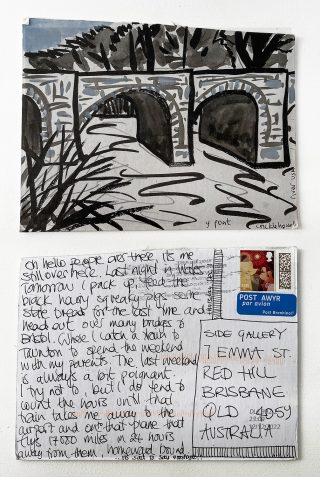 y pont
Crickhowell
Oh hello people are there, its me
still over here. Last night in Wales
Tomorrow I pack up, feed the
black hairy squeaky pigs some
stale bread for the last time and
head out over many bridges to
Bristol. Where I catch a train to
Taunton to spend the weekend
with my parents. The last weekend
is always a bit poignant.
I try not to, but I do tend to
count the hours until that
train takes me away to the
airport and on that plane that
flys 17000 miles in 24 hours
away from them, homeward bound.
POST AWYR
par avion
Post Brenhinol
SIDE GALLERY
7 EMMA ST.
RED HILL
BRISBANE
QLD 4059
AUSTRALIA
12/12/2022